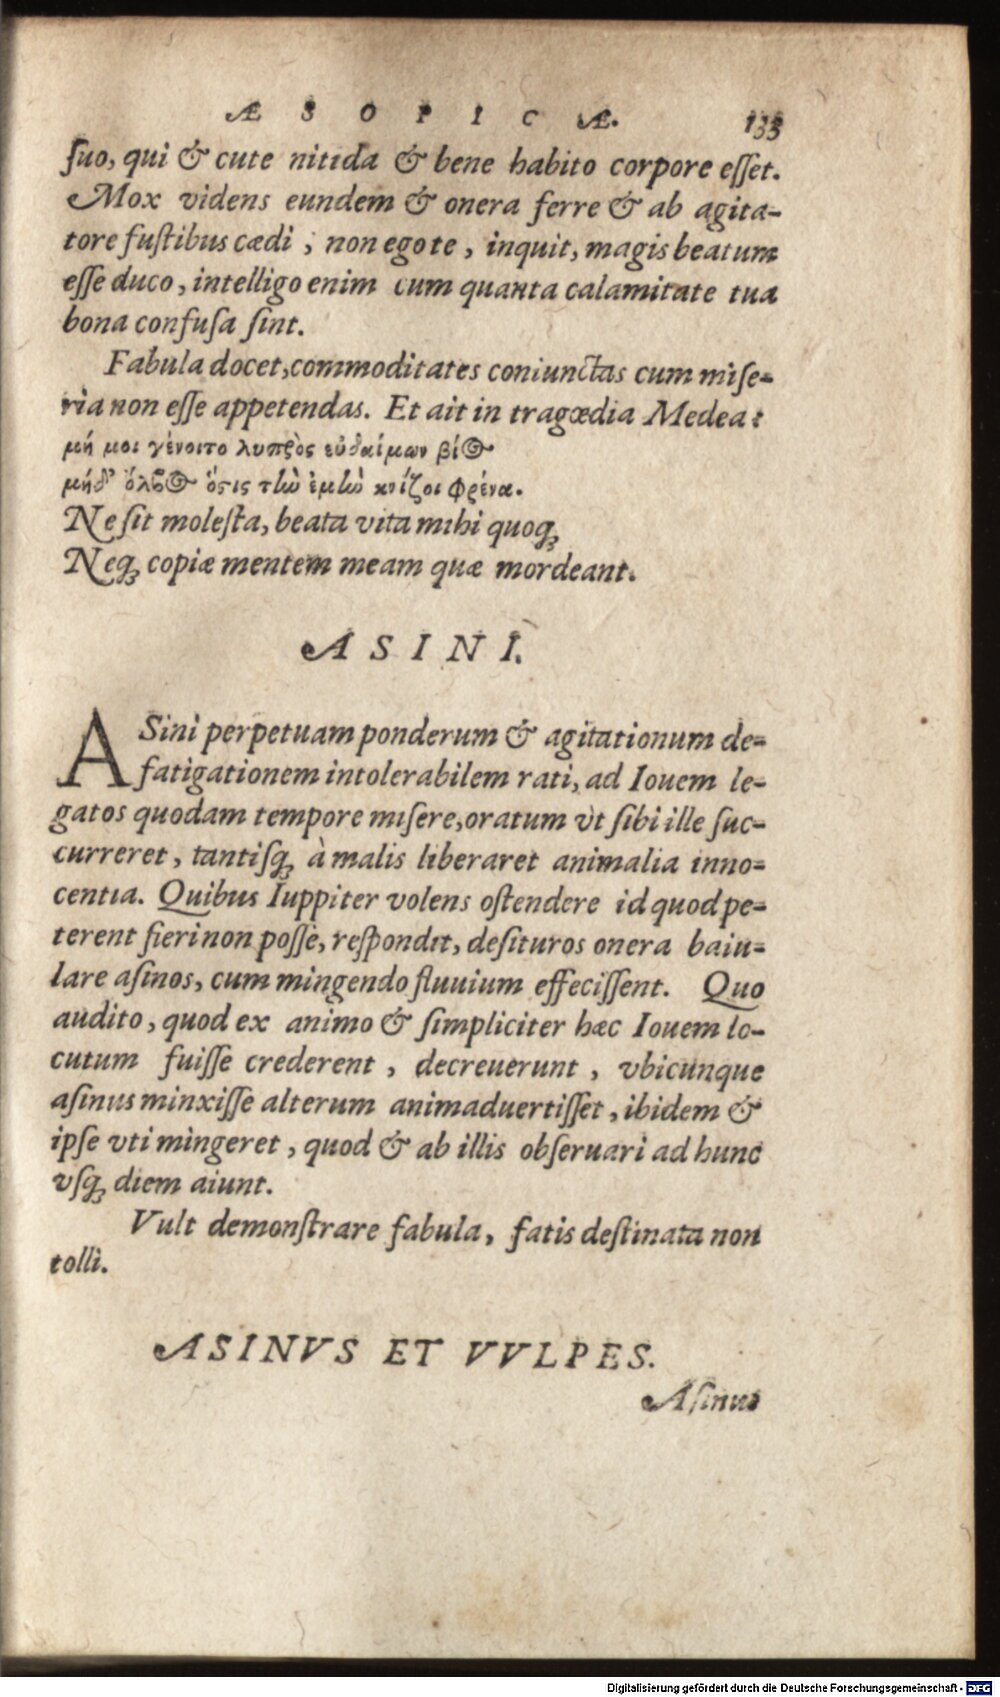 ÆSOPICÆ. 135
ſuo, qui & cute nitida & bene habito corpore eſſet.
Mox videns eundem & onera ferre & ab agita-
tore fuſtibus cædi, non ego te, inquit, magis beatum
eſſe duco, intelligo enim cum quanta calamitate tua
bona confuſa ſint.
Fabula docet, commoditates coniunctas cum miſe-
ria non eſſe appetendas. Et ait in tragœdia Medea:
μή μοι γένοιτο λυπρὸς εὐδαίμων βίος
μήδ' ὄλβος ὅστις τὴν ἐμὴν κνίζοι φρένα.
Ne ſit moleſta, beata vita mihi quoq;
Neq; copiæ mentem meam quæ mordeant.
ASINI.
ASini perpetuam ponderum & agitationum de-
fatigationem intolerabilem rati, ad Iouem le-
gatos quodam tempore miſere, oratum vt ſibi ille ſuc-
curreret, tantiſq; à malis liberaret animalia inno-
centia. Quibus Iuppiter volens oſtendere id quod pe-
terent fieri non poſſe, reſpondit, deſituros onera baiu-
lare aſinos, cum mingendo fluuium effeciſſent. Quo
audito, quod ex animo & ſimpliciter hæc Iouem lo-
cutum fuiſſe crederent, decreuerunt, vbicunque
aſinus minxiſſe alterum animaduertiſſet, ibidem &
ipſe vti mingeret, quod & ab illis obſeruari ad hunc
vſq; diem aiunt.
Vult demonſtrare fabula, fatis deſtinata non
tolli.
ASINVS ET VVLPES.
Aſinus
Digitalisierung gefördert durch die Deutsche Forschungsgemeinschaft - DFG